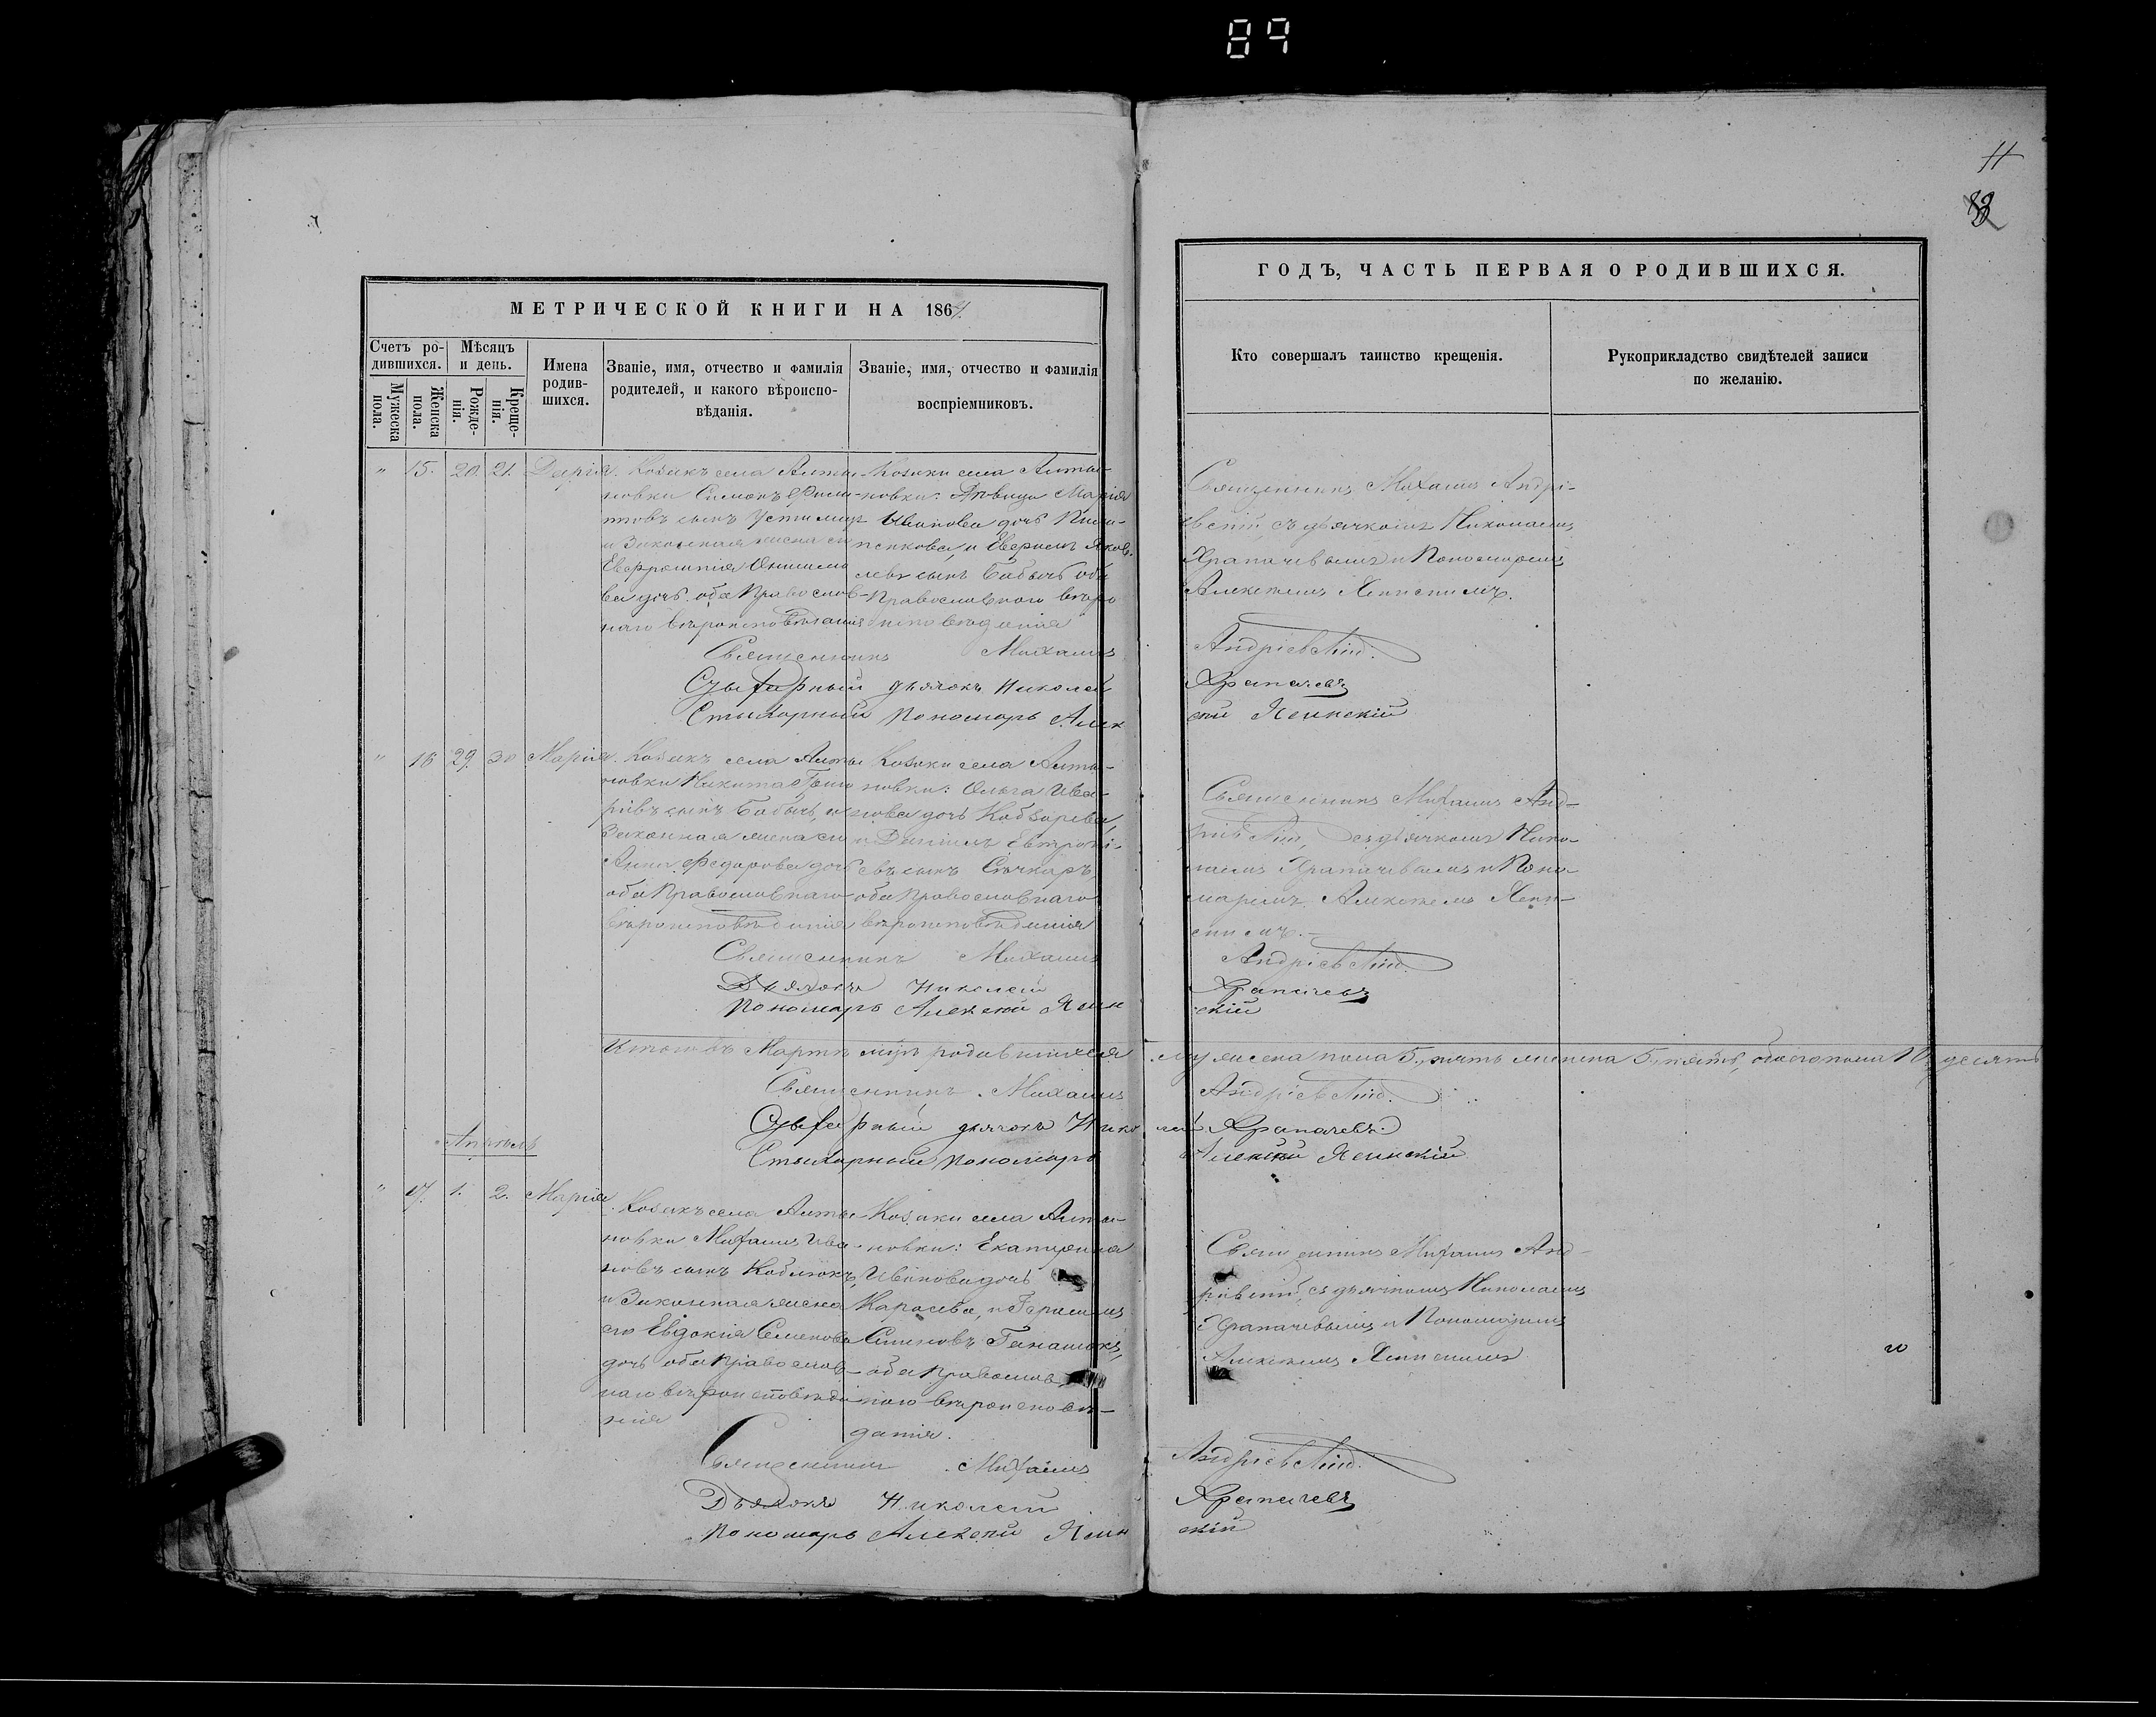 89
11
МЕТРИЧЕСКОЙ КНИГИ НА 1864
ГОДЪ, ЧАСТЬ ПЕРВАЯ О РОДИВШИХСЯ.
Счетъ ро-
дившихся.
Мужеска
пола.
Женска
пола.
Мѣсяцъ
и день.
Рожде-
нія.
Креще-
нія.
Имена
родив-
шихся.
Званіе, имя, отчество и фамилія
родителей, и какого вѣроиспо-
вѣданія.
Званіе, имя, отчество и фамилія
воспріемниковъ.
Кто совершалъ таинство крещенія.
Рукоприкладство свидѣтелей записи
по желанію.
" 15. 20. 21. Дарія.
Козакъ села Алты-
новки Симонъ Фили-
повъ сынъ
и Законная жена его
дочь оба Православ-
наго вѣроисповѣданія
Козаки села Алты-
новки: Дѣвица Марія
Иванова дочь
Яков-
левъ сынъ Бабычъ оба
Православного вѣро
исповѣданія
Священникъ Михаилъ Андрі-
евскій, съ дьячкомъ Николаемъ
Храпачевымъ и Пономаремъ
Алексѣемъ Ясинскимъ.
Священникъ Михаилъ Андріевскій.
дьячокъ Николай Храпачевъ
Стихарный Пономарь Алексѣй Ясинскій
" 16 29. 30 Марія.
Козакъ села Алты
новки Никита Григо
рьевъ сынъ Бабычъ, и
Законная жена его
Анна Федорова дочь
оба Православнаго
вѣроисповѣданія
Козаки села Алты-
новки: Ольга Ива-
нова дочь Кобзарева,
и Даніилъ
евъ сынъ Сѣчкарь,
оба Православнаго
вѣроисповѣданія
Священникъ Михаилъ Анд-
ріевскій, съ дьячкомъ Нико-
лаемъ Храпачевымъ и Поно-
маремъ Алексѣемъ Ясин-
скимъ.
Священникъ Михаилъ Андріевскій.
Дьячокъ Николай Храпачевъ
Пономарь Алексѣй Ясинскій
Итого въ Мартѣ м-цѣ родившихся мужеска пола 5, пять женска 5, пять, обоего пола 10, десять
Священникъ Михаилъ Андріевскій.
дьячокъ Николай Храпачевъ
Стихарный Пономарь Алексѣй Ясинскій
Апрѣль
" 17. 1. 2. Марія.
Козакъ села Алты
новки Михаилъ Ива-
новъ сынъ Коблюкъ,
и Законная жена
его Евдокія Семенова
дочь оба Православ-
наго вѣроисповѣда
нія
Козаки села Алты-
новки: Екатерина
Иванова дочь
Карасева, и Герасимъ
оба Православ
наго вѣроисповѣ-
данія.
Священникъ Михаилъ Анд-
ріевскій, съ дьячкомъ Николаемъ
Храпачевымъ и Пономаремъ
Алексѣемъ Ясинскимъ
Священникъ Михаилъ Андріевскій.
Дьячокъ Николай Храпачевъ
Пономарь Алексѣй Ясинскій